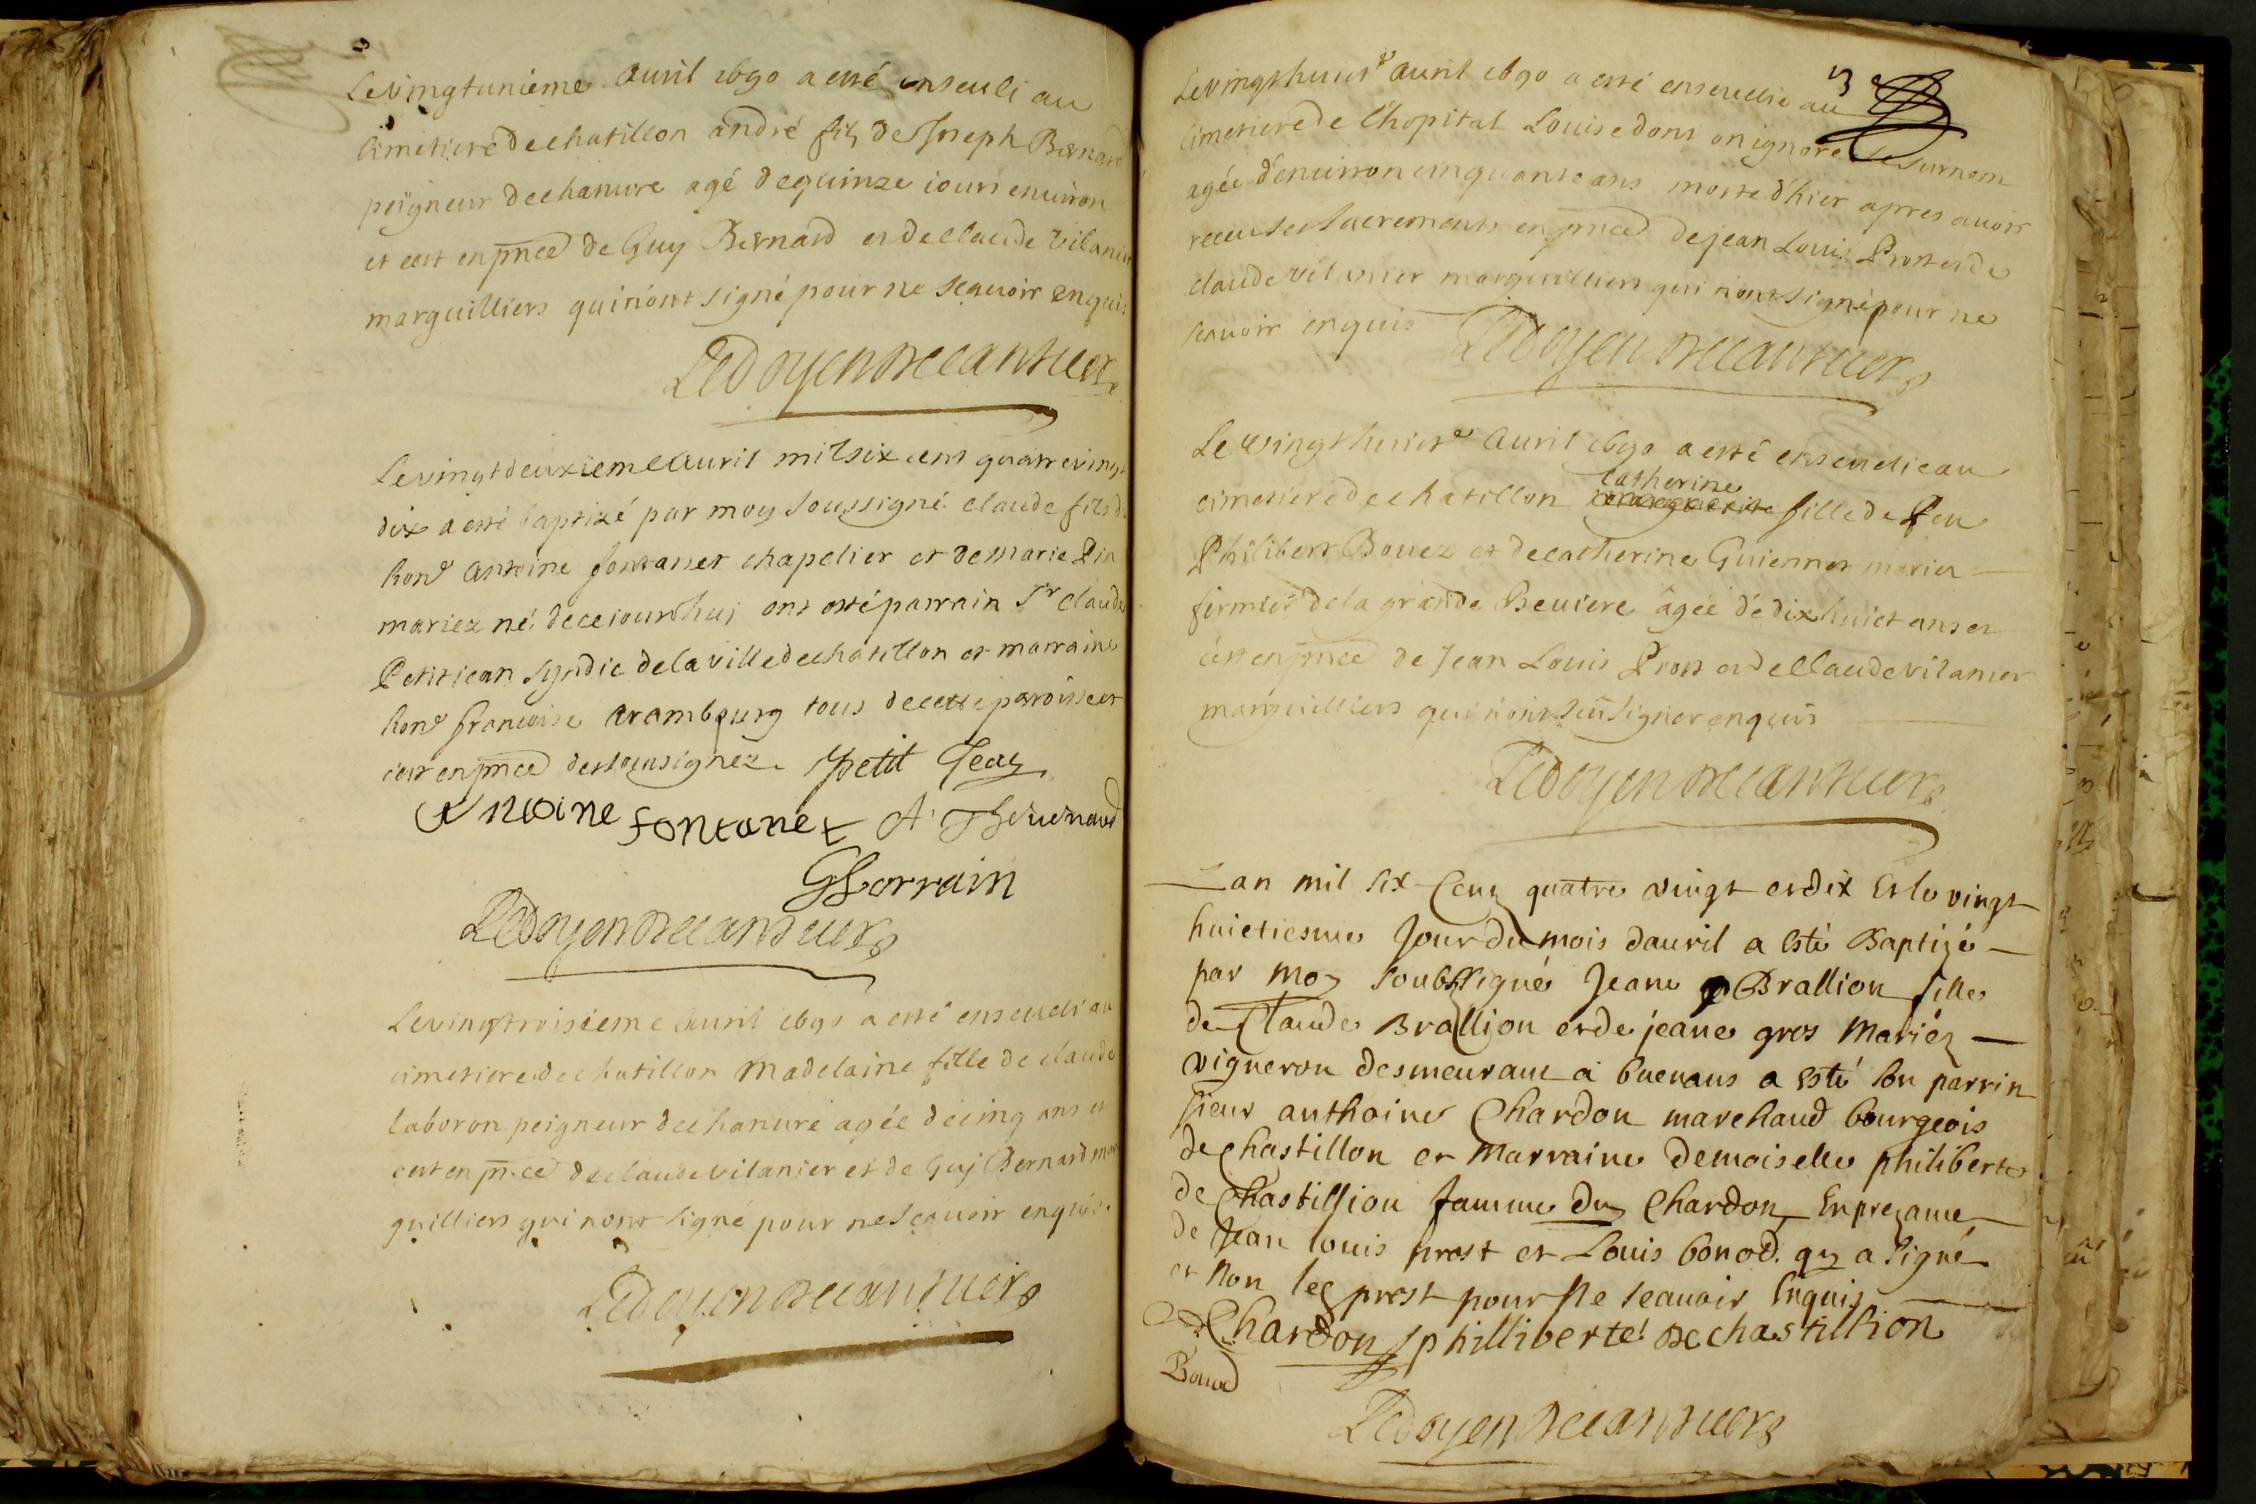 Le vingtunieme auril 1690 a esté enseueli au
cimetiere de chatillon andré fils de Joseph Bernard
peigneur de chanure agé de quinze iours enuiron
et cest en pñce de Guy Bernard et de claude vilanier
marguilliers qui n'ont signé pour ne scauoir enquis
Ledoyen Decanteers
Le vingtdeuxieme auril mil six cens quatre vingt
dix a esté baptizé par moy soussigné claude fils d
honẽ antoine fontanet chapelier et de marie Pin
mariez né de ce iourdhuj ont esté parrain Sr claude
Petitiean syndic de la ville de chatillon et marraine
honẽ francoise arambourg tous de cette paroisse et
cest en pñce des soussignez petit Jean
Antoine fontanet A Theuenard
G Lorrain
Ledoyen Decanteers
Le vingtroisieme auril 1690 a esté enseueli au
cimetiere de chatillon Madelaine fille de claude
laboron peigneur de chanure agée de cinq ans et
cest en pñce de claude vilanier et de Guj Bernard mar
guilliers qui n'ont signé pour ne scauoir enquis.
Ledoyen Decanteers
Le vingthuictẽ auril 1690 a esté enseuelie au
cimetiere de l'hopital Louise dont on ignore le surnom
agée d'enuiron cinquante ans morte d'hier apres auoir
receu ses sacrements en pñce de jean Louis Prost et de
claude vilanier marguilliers qui n'ont signé pour ne
scauoir enquis
Ledoyen Decanteers
Le vingthuictẽ auril 1690 a esté enseuelie au
catherine
cimetiere de chatillon marguerite fille de feu
Philibert Bouez et de catherine Guiennet mariez
fermier de la grande Beuiere agée de dix huict ans et
c'est en pñce de Jean Louis Prost et de Claude vilanier
marguilliers qui n'ont sceu signer enquis
Ledoyen Decanteers
Lan mil six Cens quatre vingt et dix Et le vingt
huictiesme Jour du mois dauril a esté Baptizé
par moy soubssigné Jeane Brallion fille
de Claude Brallion et de jeane gros Mariez
vigneron desmeurant a buenans a esté son parrin
sieur anthoine Chardon marchand bourgeois
de chastillon et Marraine demoiselle philiberte
de Chastillion famme du Chardon En prezance
de Jean louis prost et Louis bonod. qy a signé
et non led prost pour ne scauoir Enquis
Chardon philliberte De chastillion
Bonod
Ledoyen Decanteers